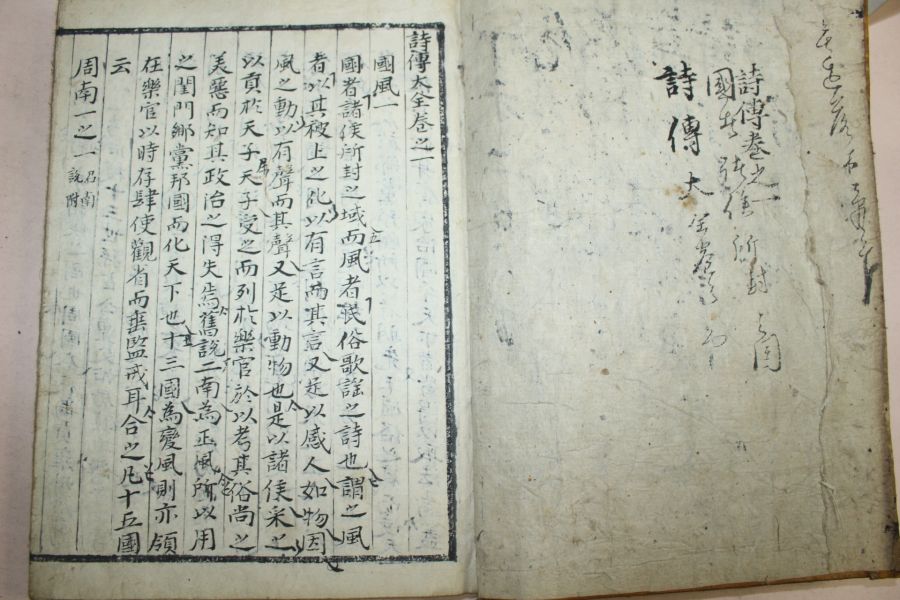 詩傳卷之一
國者諸侯所封之國
詩傳大全卷之
詩傳大全卷之一
國風一
國者諸侯所封之域而風者民俗歌謠之詩也謂之風
者以其被上之化以有言而其言又足以感人如物因
風之動以有聲而其聲又足以動物也是以諸侯采之
以貢於天子天子受之而列於樂官於以考其俗尚之
美惡而知其政治之得失焉舊說二南為正風所以用
之閨門鄉黨邦國而化天下也十三國為變風則亦領
在樂官以時存肄使觀省而垂監戒耳合之凡十五國
云
周南一之一 召南說附